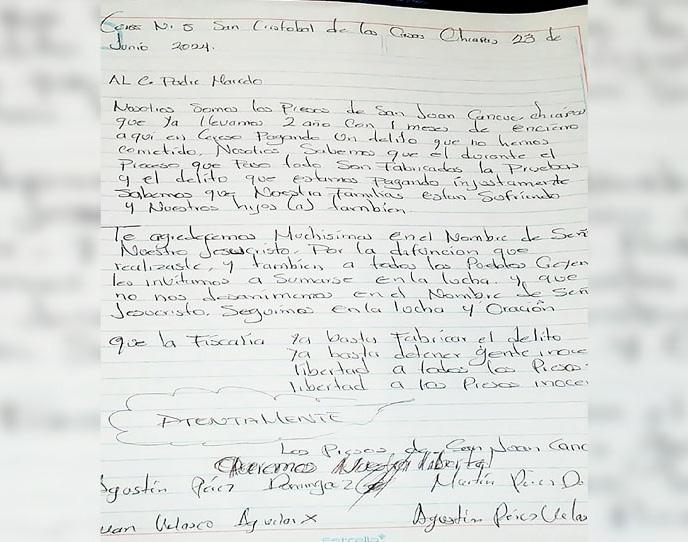 Ceres N. 5 San Cristobal de las Casas Chiapas 23 de
Junio 2024.
AL C. Padre Marcelo
Nosotros Somos los Presos de San Juan Cancuc, chiapas
que ya llevamos 2 año con 1 meses de encierro
aqui en Cereso Pagando Un delito que no hemos
cometido. Nosotros Sabemos que el durante el
Proceso que Paso todo Son Fabricadas la Pruebas
y el delito que estamos Pagando injustamente
Sabemos que Nuestra Familias estan Sufriendo
y Nuestros hijos (a) tambien.
Te agredecemos Muchisimas en el Nombre de Señ
Nuestro Jesucristo. Por la difuncion que
realizaste, y tambien a todos los Pueblos Creyen
les invitamos a Sumarse en la lucha. y que
no nos desanimemos en el Nombre de Señ
Jesucristo. Seguimos en la lucha y Oración
que la Fiscalia ya basta Fabricar el delito
ya basta detener gente inoce
libertad a todos los Presos
libertad a los Presos inoce
ATENTAMENTE
Los Presos de San Juan Canc
Queremos Nuestra libertad
Agustín Pérez Domínguez Martín Pérez D
uan Velasco Aguilar X Agustín Pérez Velas